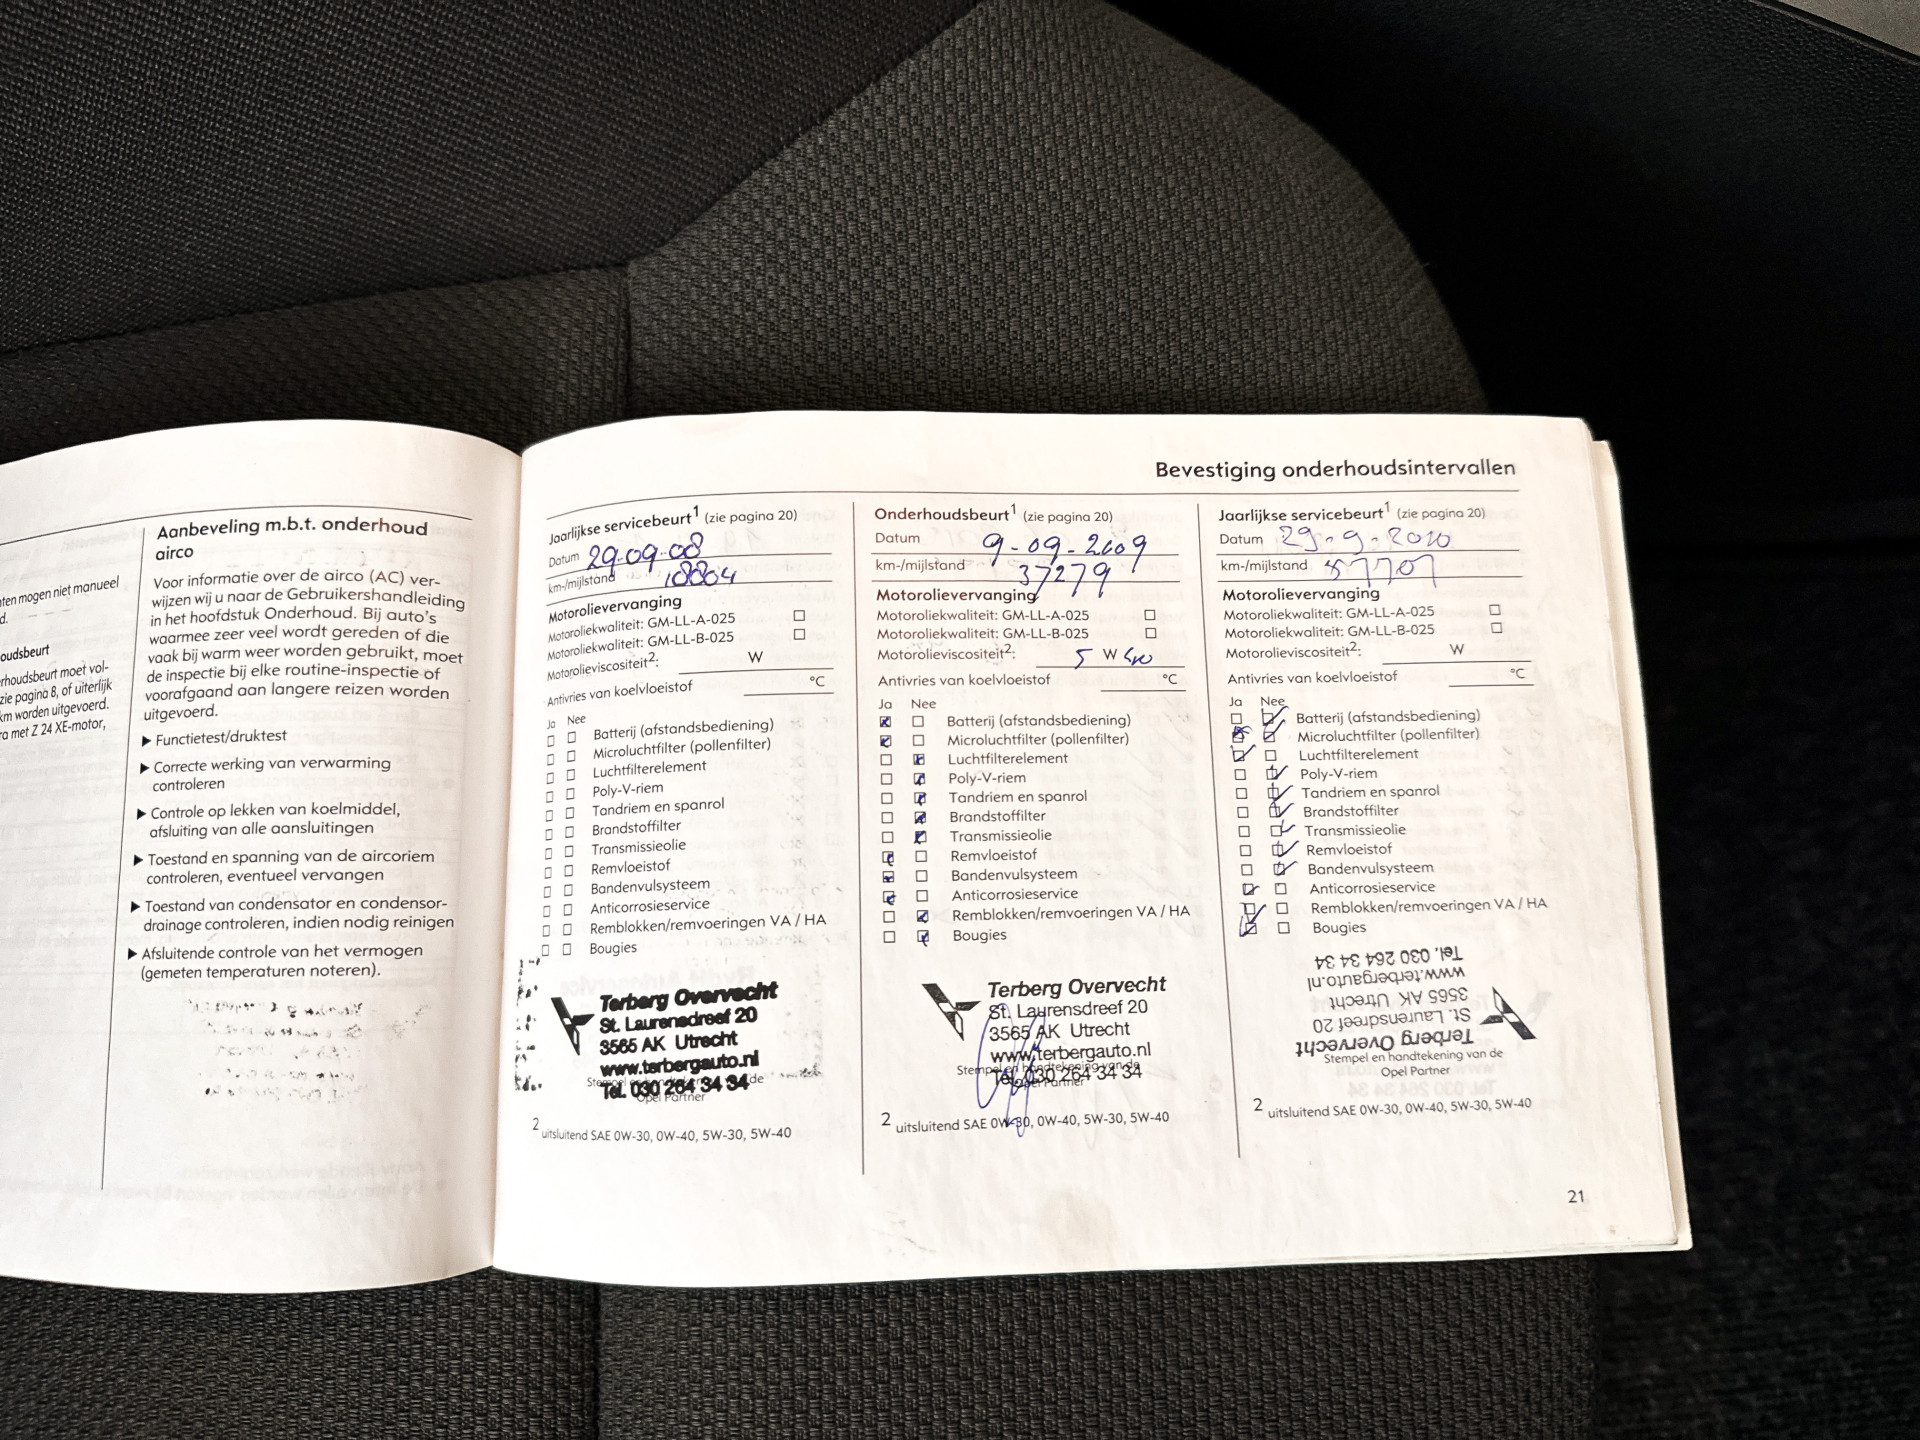 ten mogen niet manueel
d.
oudsbeurt
rhoudsbeurt moet vol-
zie pagina 8, of uiterlijk
km worden uitgevoerd.
ra met Z 24 XE-motor,
Aanbeveling m.b.t. onderhoud
airco
Voor informatie over de airco (AC) ver-
wijzen wij u naar de Gebruikershandleiding
in het hoofdstuk Onderhoud. Bij auto's
waarmee zeer veel wordt gereden of die
vaak bij warm weer worden gebruikt, moet
de inspectie bij elke routine-inspectie of
voorafgaand aan langere reizen worden
uitgevoerd.
▶ Functietest/druktest
▶ Correcte werking van verwarming
controleren
▶ Controle op lekken van koelmiddel,
afsluiting van alle aansluitingen
▶ Toestand en spanning van de aircoriem
controleren, eventueel vervangen
▶ Toestand van condensator en condensor-
drainage controleren, indien nodig reinigen
▶ Afsluitende controle van het vermogen
(gemeten temperaturen noteren).
Bevestiging onderhoudsintervallen
Jaarlijkse servicebeurt1 (zie pagina 20)
Datum 29-09-08
km-/mijlstand 18804
Motorolievervanging
Motoroliekwaliteit: GM-LL-A-025
Motoroliekwaliteit: GM-LL-B-025
Motorolieviscositeit2: W
Antivries van koelvloeistof °C
Ja Nee
Batterij (afstandsbediening)
Microluchtfilter (pollenfilter)
Luchtfilterelement
Poly-V-riem
Tandriem en spanrol
Brandstoffilter
Transmissieolie
Remvloeistof
Bandenvulsysteem
Anticorrosieservice
Remblokken/remvoeringen VA / HA
Bougies
Terberg Overvecht
St. Laurensdreef 20
3565 AK Utrecht
www.terbergauto.nl
Tel. 030 264 34 34
Stempel en handtekening van de
Opel Partner
2 uitsluitend SAE 0W-30, 0W-40, 5W-30, 5W-40
Onderhoudsbeurt1 (zie pagina 20)
Datum 9-09-2009
km-/mijlstand 37279
Motorolievervanging
Motoroliekwaliteit: GM-LL-A-025
Motoroliekwaliteit: GM-LL-B-025
Motorolieviscositeit2: 5 W 40
Antivries van koelvloeistof °C
Ja Nee
Batterij (afstandsbediening)
Microluchtfilter (pollenfilter)
Luchtfilterelement
Poly-V-riem
Tandriem en spanrol
Brandstoffilter
Transmissieolie
Remvloeistof
Bandenvulsysteem
Anticorrosieservice
Remblokken/remvoeringen VA / HA
Bougies
Terberg Overvecht
St. Laurensdreef 20
3565 AK Utrecht
www.terbergauto.nl
Stempel en handtekening van de
Tel. 030 264 34 34
Opel Partner
2 uitsluitend SAE 0W-30, 0W-40, 5W-30, 5W-40
Jaarlijkse servicebeurt1 (zie pagina 20)
Datum 29-9-2010
km-/mijlstand 57707
Motorolievervanging
Motoroliekwaliteit: GM-LL-A-025
Motoroliekwaliteit: GM-LL-B-025
Motorolieviscositeit2: W
Antivries van koelvloeistof °C
Ja Nee
Batterij (afstandsbediening)
Microluchtfilter (pollenfilter)
Luchtfilterelement
Poly-V-riem
Tandriem en spanrol
Brandstoffilter
Transmissieolie
Remvloeistof
Bandenvulsysteem
Anticorrosieservice
Remblokken/remvoeringen VA / HA
Bougies
Terberg Overvecht
St. Laurensdreef 20
3565 AK Utrecht
www.terbergauto.nl
Tel. 030 264 34 34
Stempel en handtekening van de
Opel Partner
2 uitsluitend SAE 0W-30, 0W-40, 5W-30, 5W-40
21